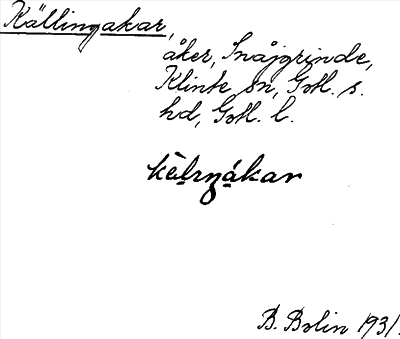 Källingakar,
åker, Snäjgrinde,
Klinte sn, Gotl. s.
hd, Gotl. l.
B. Bolin 1931.